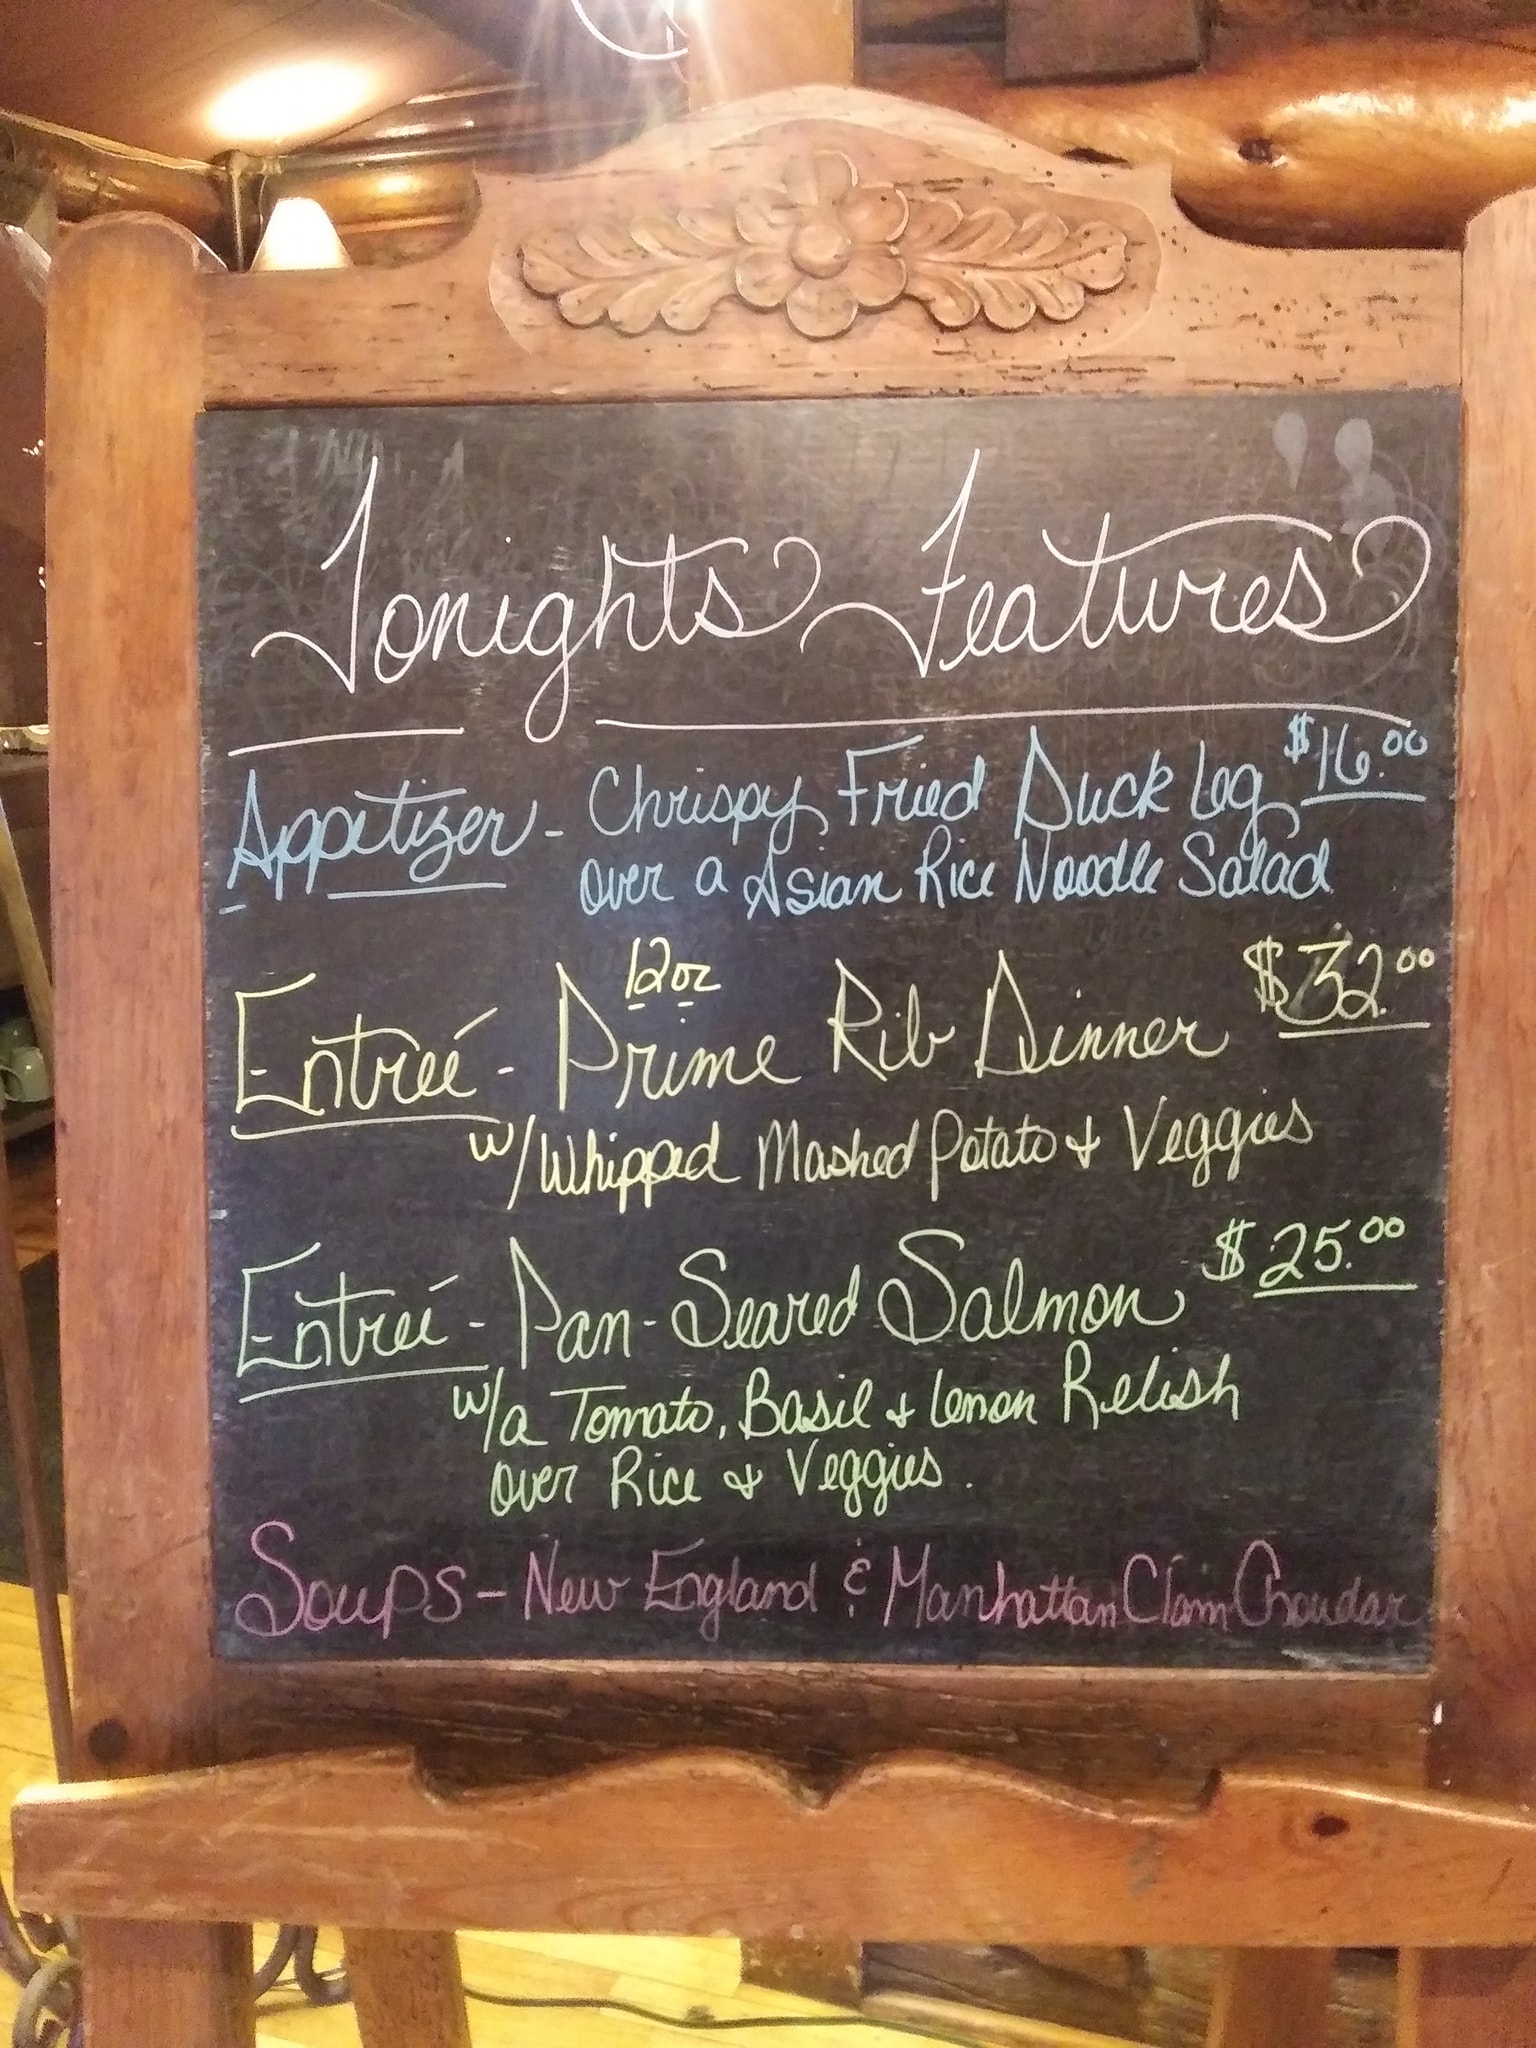 Tonights Features
Appetizer - Chrispy Fried Duck Leg $16.00
over a Asian Rice Noodle Salad
Entreé - 12oz Prime Rib Dinner $32.00
w/Whipped Mashed Potato & Veggies
Entreé - Pan-Seared Salmon $25.00
w/a Tomato, Basil & Lemon Relish
over Rice & Veggies.
Soups - New England & Manhattan Clam Choudar